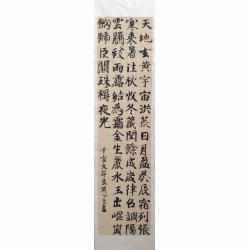 天地玄黃宇宙洪荒日月盈昃辰宿列張
寒來暑往秋收冬藏閏餘成歲律呂調陽
雲騰致雨露結為霜金生麗水玉出崑崗
劍號巨闕珠稱夜光
千字文節